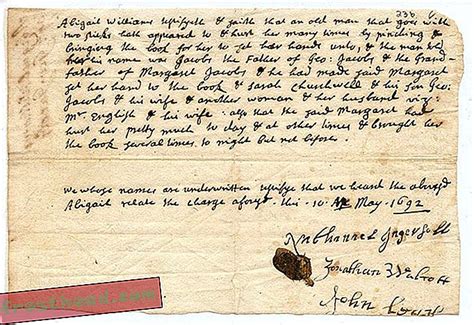 236
Abigail Williams testifyeth & saith that an old man that goes with
two sticks hath appeared to & hurt her many times by pinching &
bringing the book for her to set her hand unto, & the man told
her his name was Jacobs the Father of Geo: Jacobs & the Grand-
father of Margaret Jacobs & he had made said Margaret
set her hand to the book & Sarah Churchwell & his son Geo:
Jacobs & his wife & another woman & her husband viz:
Mr English & his wife: also that the said Margaret had
hurt her pretty much to day & at other times & brought her
the book several times to night but not before.
we whose names are underwritten testifye that we heard the abovesd
Abigail relate the charge aforesd this 10 May 1692
Nathanael Ingersoll
Jonathan Walcott
John
frosthead.com